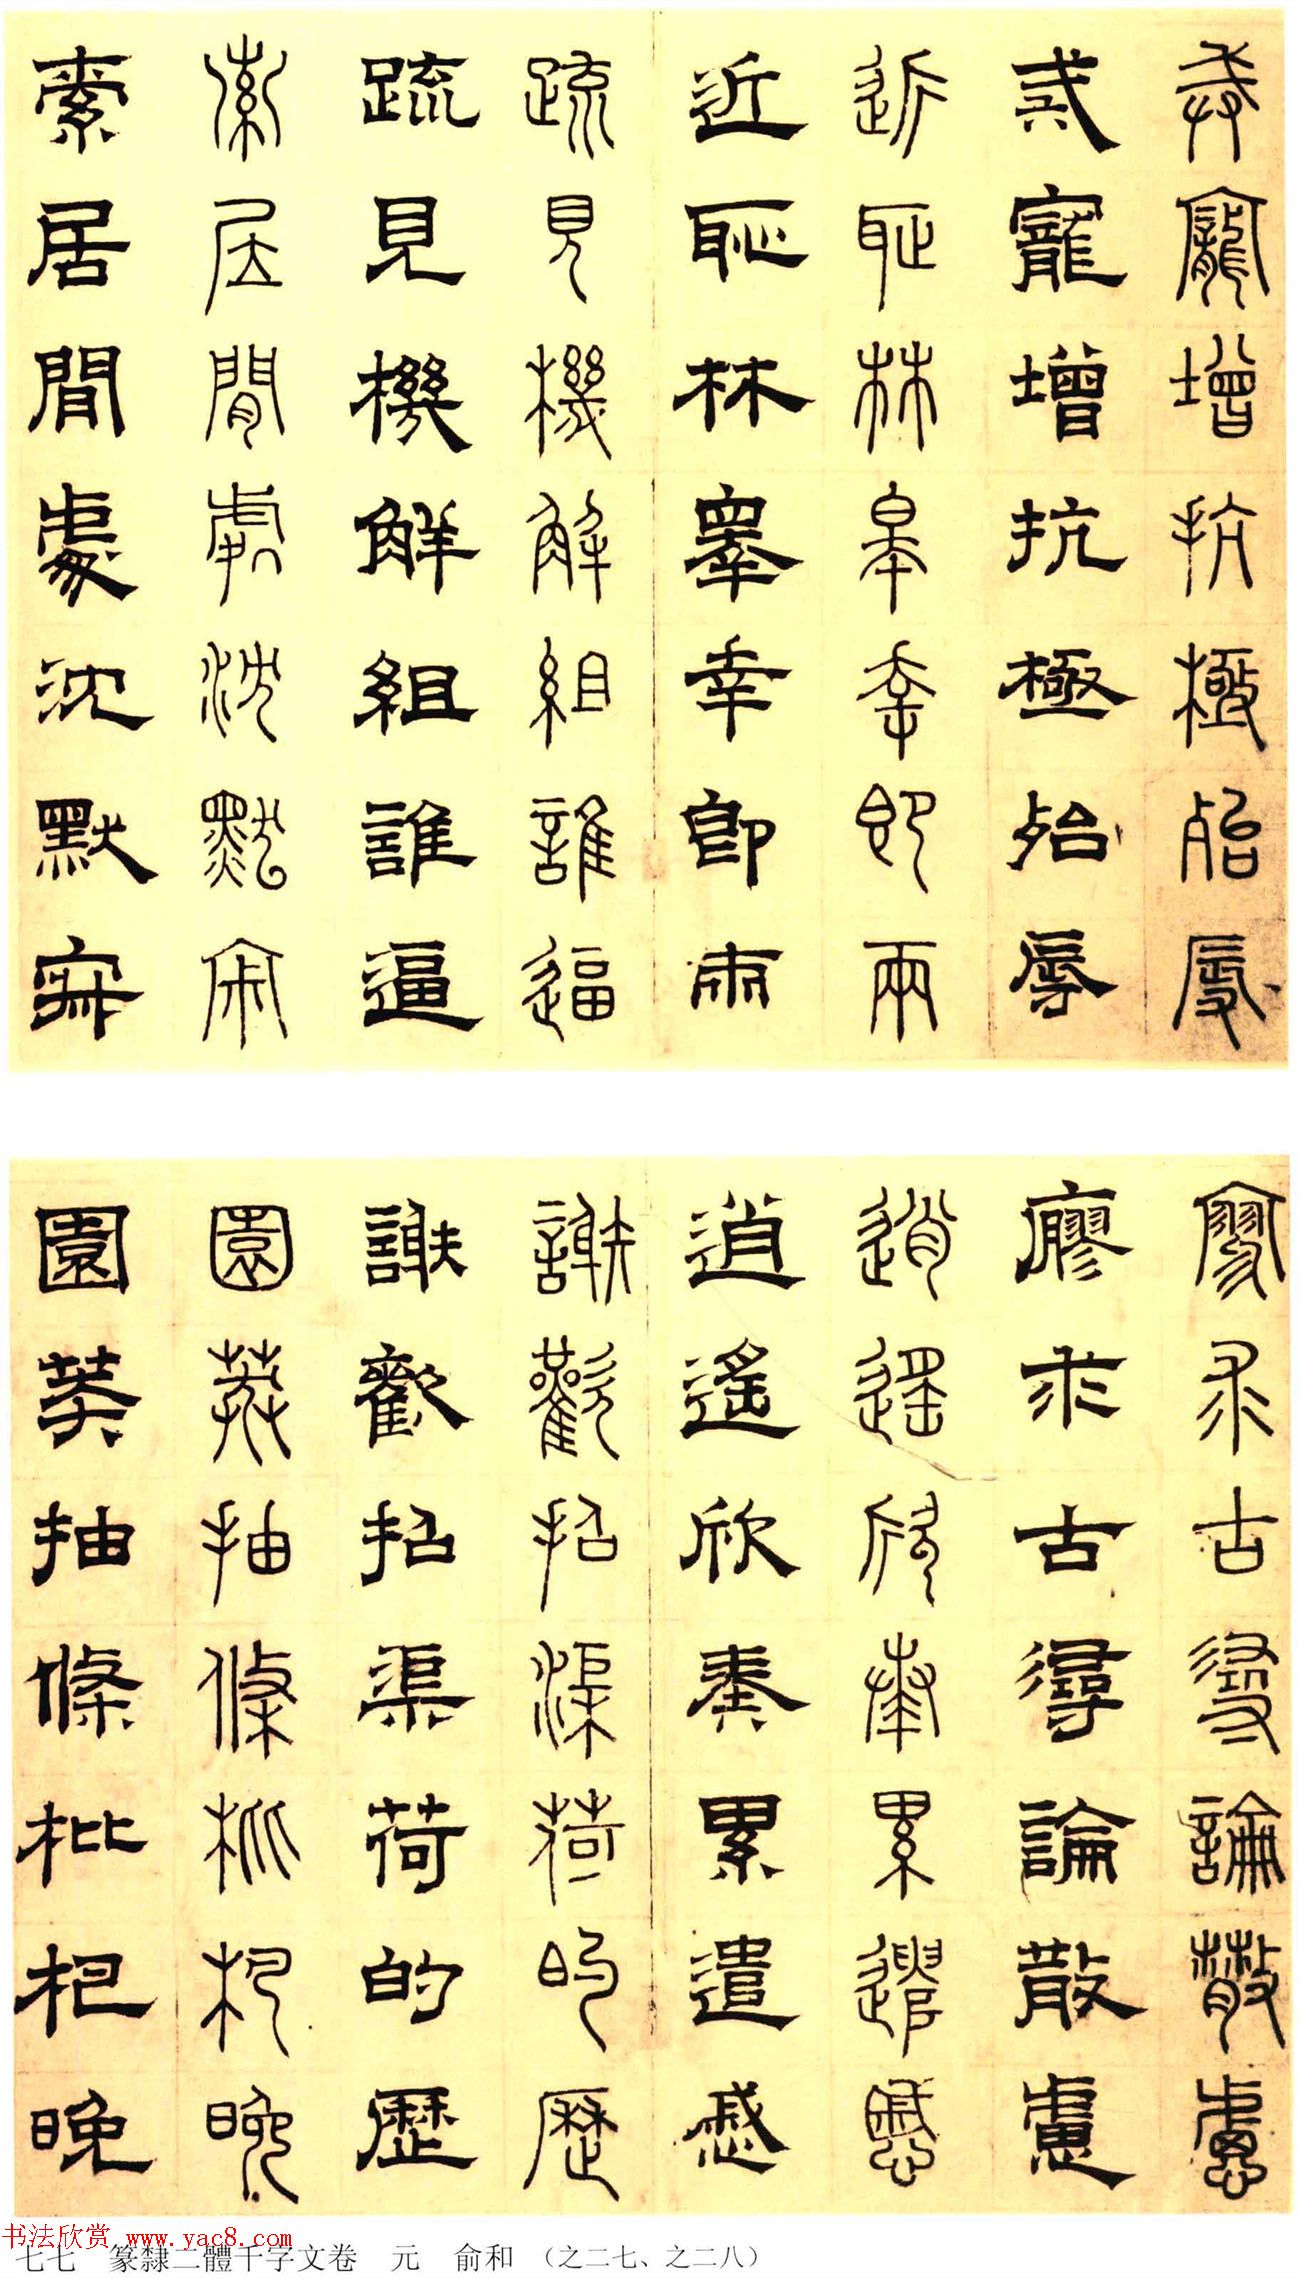 戒寵增抗極殆辱
戒寵增抗極殆辱
近恥林皋幸即兩
近恥林皋幸即兩
疏見機解組誰逼
疏見機解組誰逼
索居閒處沈默寂
索居間處沈默寂
寥求古尋論散慮
廖求古尋論散慮
逍遙欣奏累遣慼
逍遙欣奏累遣慼
謝歡招渠荷的歷
謝歡招渠荷的歷
園莽抽條枇杷晚
園莽抽條枇杷晚
书法欣赏 www.yac8.com
七七 篆隸二體千字文卷 元 俞和 （之二七、之二八）